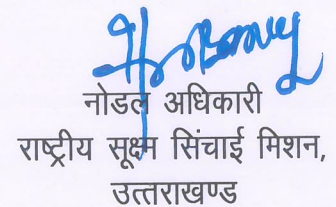 नोडल अधिकारी
राष्ट्रीय सूक्ष्म सिंचाई मिशन,
उत्तराखण्ड